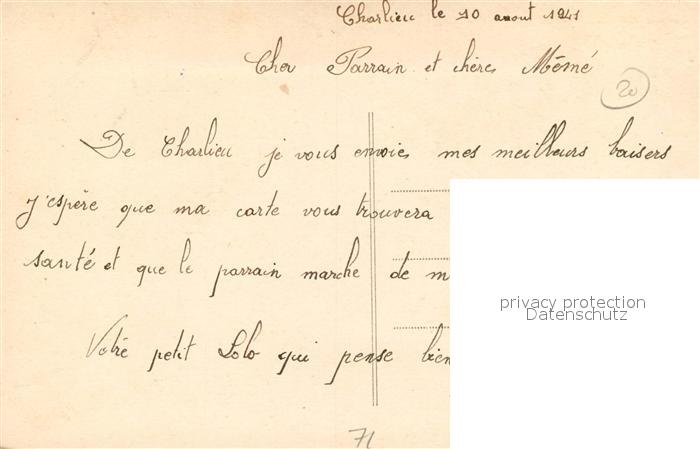 Charlieu le 10 aout 1941
Cher Parrain et chère Mémé
20
De Charlieu je vous envoies mes meilleurs baisers
j'espère que ma carte vous trouvera
santé et que le parrain marche de m
Votre petit Lolo qui pense bien
privacy protection
Datenschutz
71